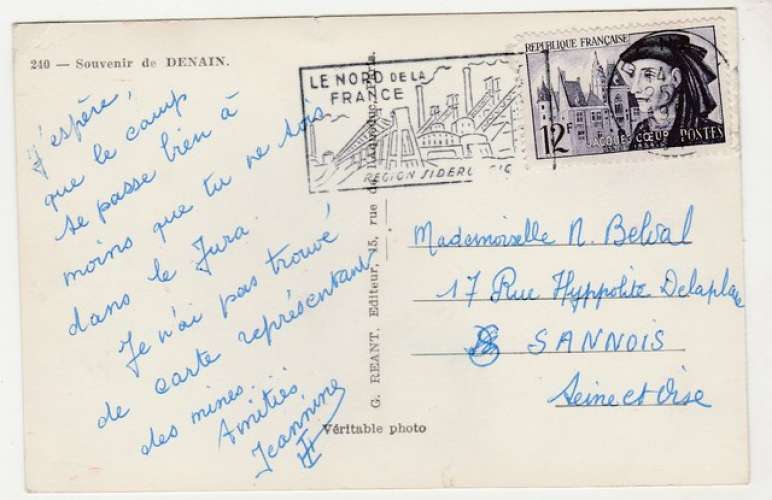 240 — Souvenir de DENAIN.
J'espère,
que le camp
se passe bien à
moins que tu ne sois
dans le Jura.
Je n'ai pas trouvé
de carte représentant
des mines...
Amitiés
Jeannine
G. REANT, Editeur, 15, rue de
Véritable photo
LE NORD DE LA
FRANCE
REGION SIDER
REPUBLIQUE FRANÇAISE
12F
JACQUES CŒUR
POSTES
Mademoiselle N. Belval
17 Rue Hyppolite Delaplace
SANNOIS
Seine et Oise